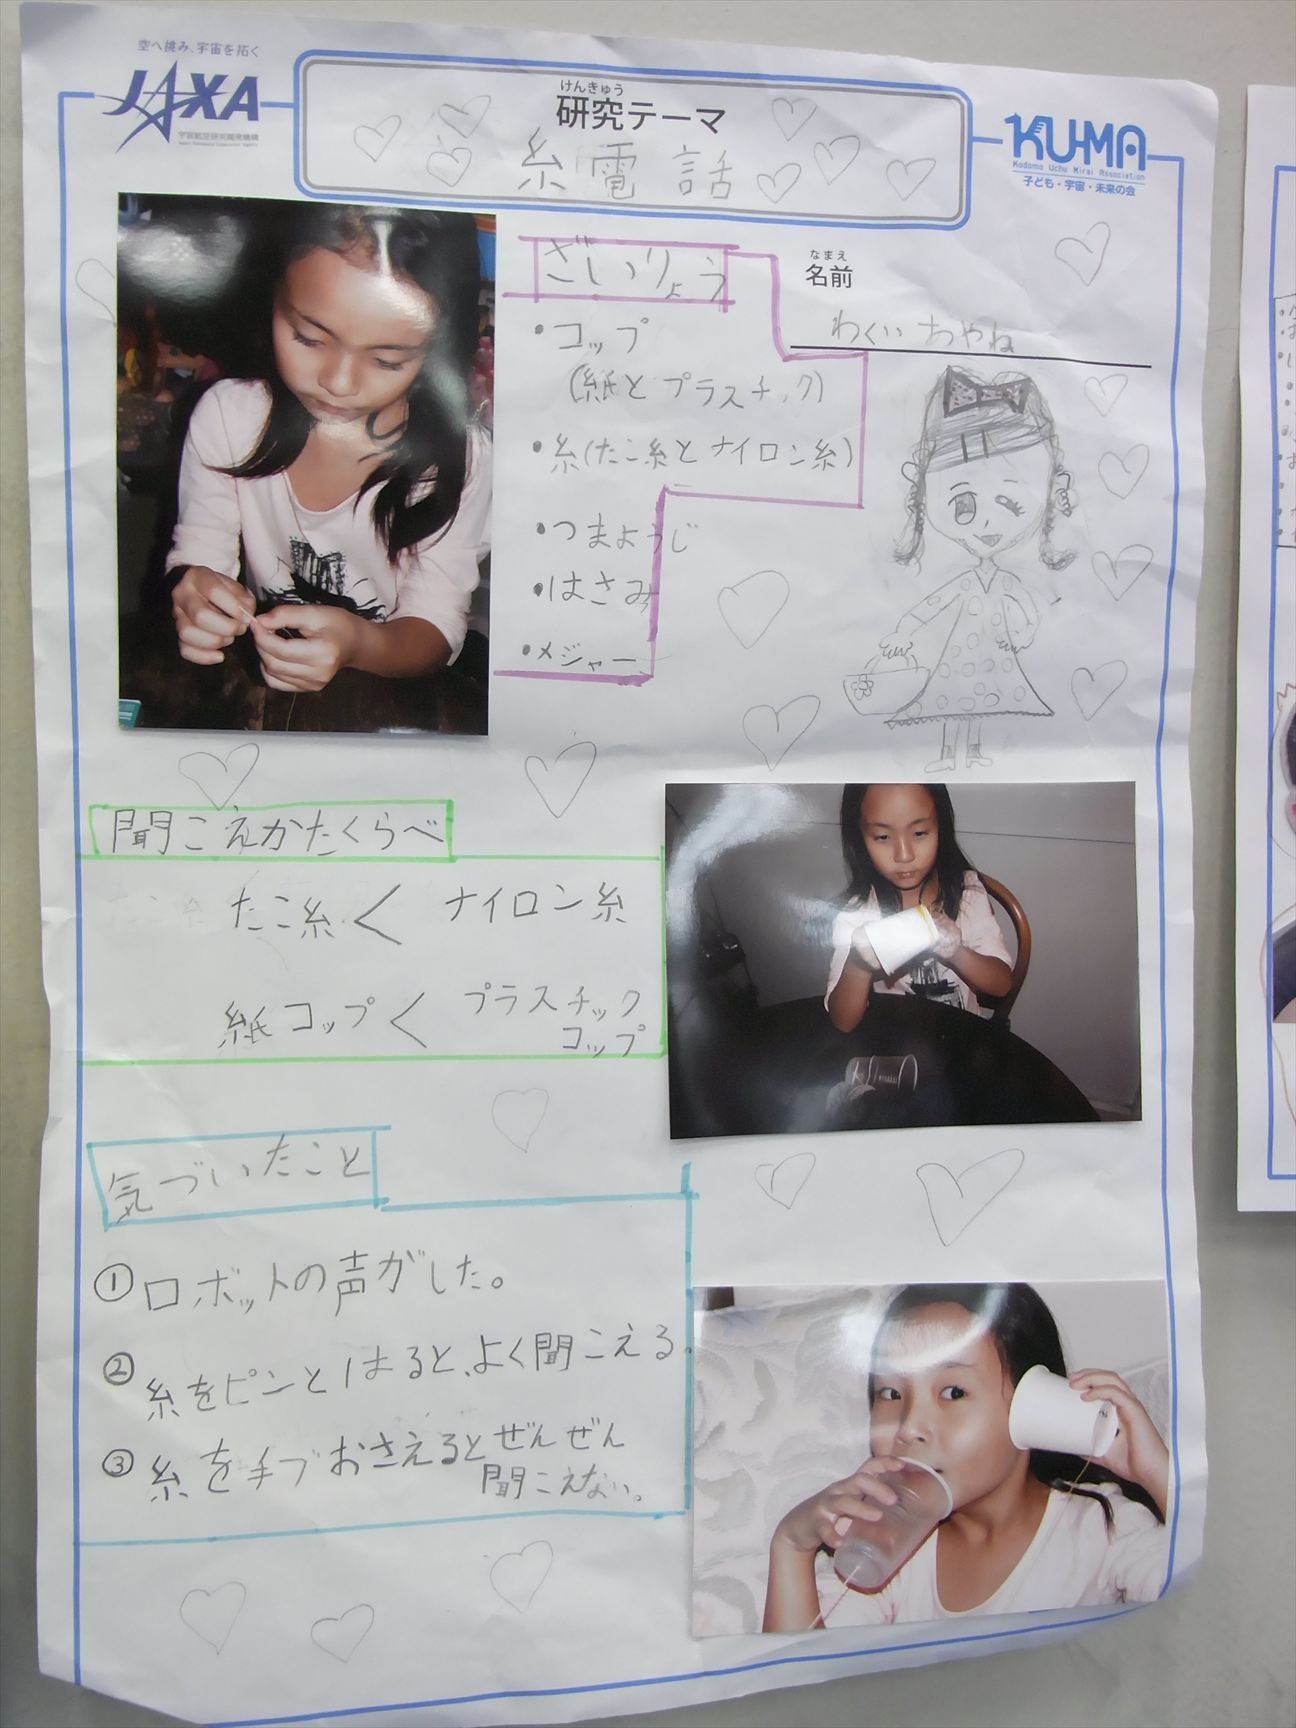 空へ挑み、宇宙を拓く
JAXA
宇宙航空研究開発機構
Japan Aerospace Exploration Agency
けんきゅう
研究テーマ
糸電話
KU-MA
Kodomo Uchu Mirai Association
子ども・宇宙・未来の会
ざいりょう
なまえ
名前
わくい あやね
・コップ
(紙とプラスチック)
・糸(たこ糸とナイロン糸)
・つまようじ
・はさみ
・メジャー
聞こえかたくらべ
たこ糸 < ナイロン糸
紙コップ < プラスチック
コップ
気づいたこと
① ロボットの声がした。
② 糸をピンとはると、よく聞こえる。
③ 糸を手でおさえるとぜんぜん
聞こえない。